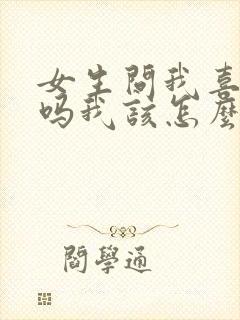 女生問我喜
嗎我該怎麼
閻學通